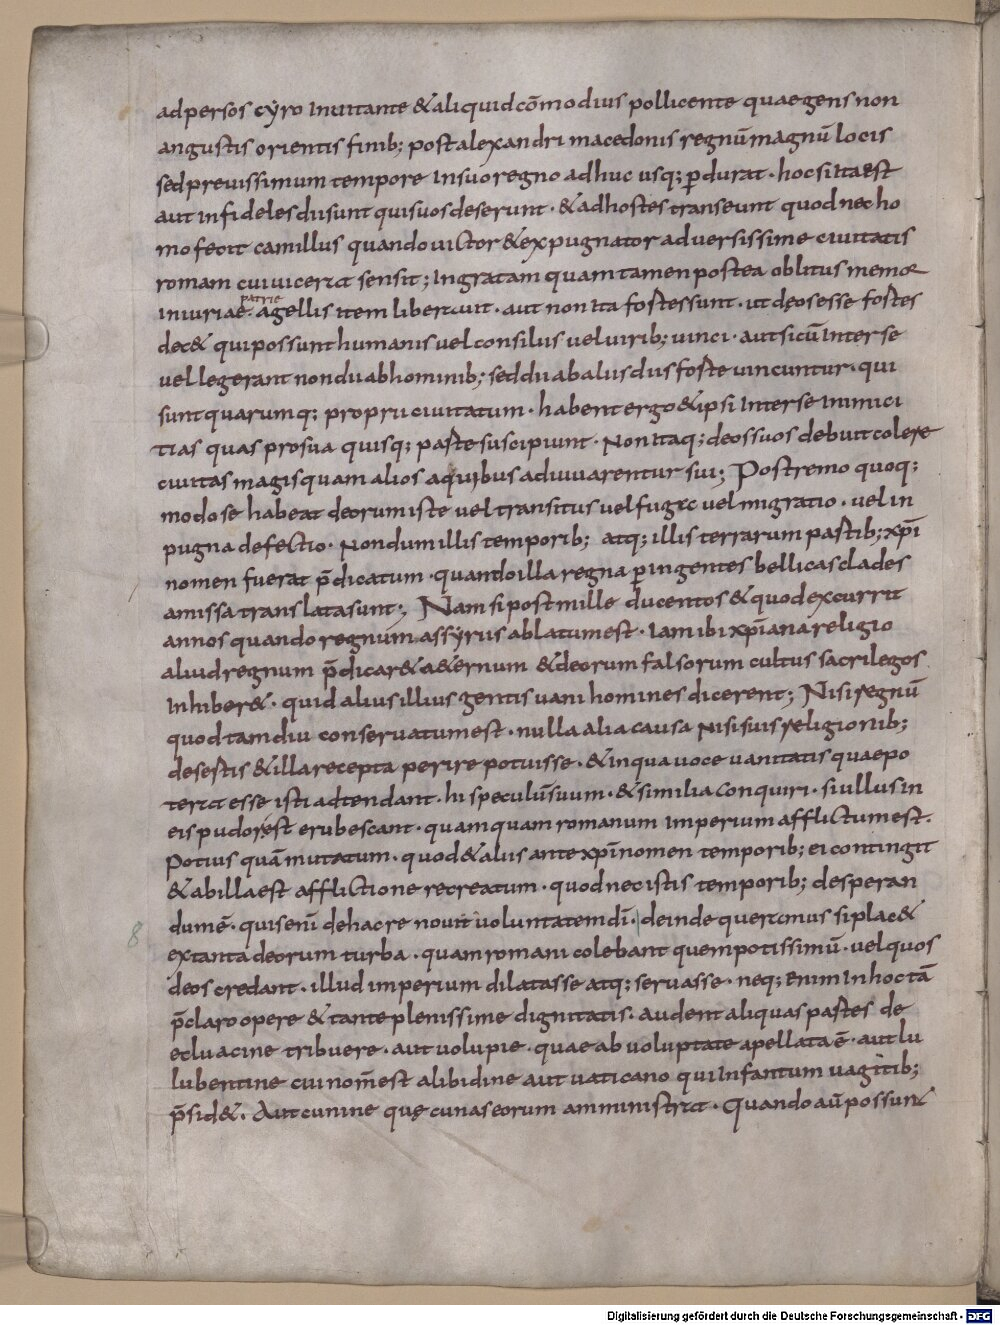 ad persos cyro inuitante & aliquid cōmodius pollicente quae gens non
angustis orientis finib; post alexandri macedonis regnū magnū locis
sed preuissimum tempore in suo regno adhuc usq; ꝑdurat · hoc si ita est
aut infideles dii sunt qui suos deserunt · & ad hostes transeunt quod nec ho
mo fecit camillus quando uictor & expugnator aduersissime ciuitatis
romam cui uicerat sensit; Ingratam quam tamen postea oblitus memor
patrie
iniuriae · a gellis item liberauit · aut non ita fostes sunt · ut dęos esse fostes
dec& qui possunt humanis uel consiliis uel uirib; uinci · aut si cū inter se
uel legerant non dii ab hominib; sed dii ab aliis diis foste uincuntur · qui
sunt quarumq; proprii ciuitatum · habent ergo & ipsi inter se inimici
tias quas pro sua quisq; paste suscipiunt · Non itaq; deos suos debuit colere
ciuitas magis quam alios a quibus adiuuarentur sui; Postremo quoq;
modo se habeat deorum iste uel transitus uel fuga uel migratio · uel in
pugna defectio · Nondum illis temporib; atq; illis terrarum pastib; xp̄i
nomen fuerat p̄dicatum · quando illa regna ꝑ ingentes bellicas clades
amissa translata sunt; Nam si post mille ducentos & quod excurrit
annos quando regnum assyriis ablatum est · Iam ibi xp̄iana religio
aliud regnum p̄dicar& a&ernum & deorum falsorum cultus sacrilegos
Inhiber& · quid alius illius gentis uani homines dicerent; Nisi regnū
quod tam diu conseruatum est · nulla alia causa nisi suis religionib;
desestis & illa recepta perire potuisse · & in qua uoce uanitatis quae po
terat esse isti adtendant · hi speculū suum · & similia conquiri · si ullus in
eis pudor est erubescant · quamquam romanum imperium afflictum est ·
Potius quā mutatum · quod & aliis ante xp̄i nomen temporib; ei contingit
& ab illa est afflictione recreatum · quod nec istis temporib; desperan
dum ē · quis enī de hac re nouit uoluntatem dī · deinde queramus si plac&
ex tanta deorum turba · quam romani colebant quem potissimū · uel quos
deos credant · illud imperium dilatasse atq; seruasse · neq; enim in hoc tā
p̄claro opere & tante plenissime dignitatis · audent aliquas pastes de
e cluacine tribuere · aut uolupie · quae ab uoluptate apellata ē · aut lu
lubentine cui nom̄ est a libidine aut uaticano qui infantum uagitib;
p̄sid& · Aut cunine quę cunas eorum amministrat · Quando aū possun&
8
Digitalisierung gefördert durch die Deutsche Forschungsgemeinschaft - DFG